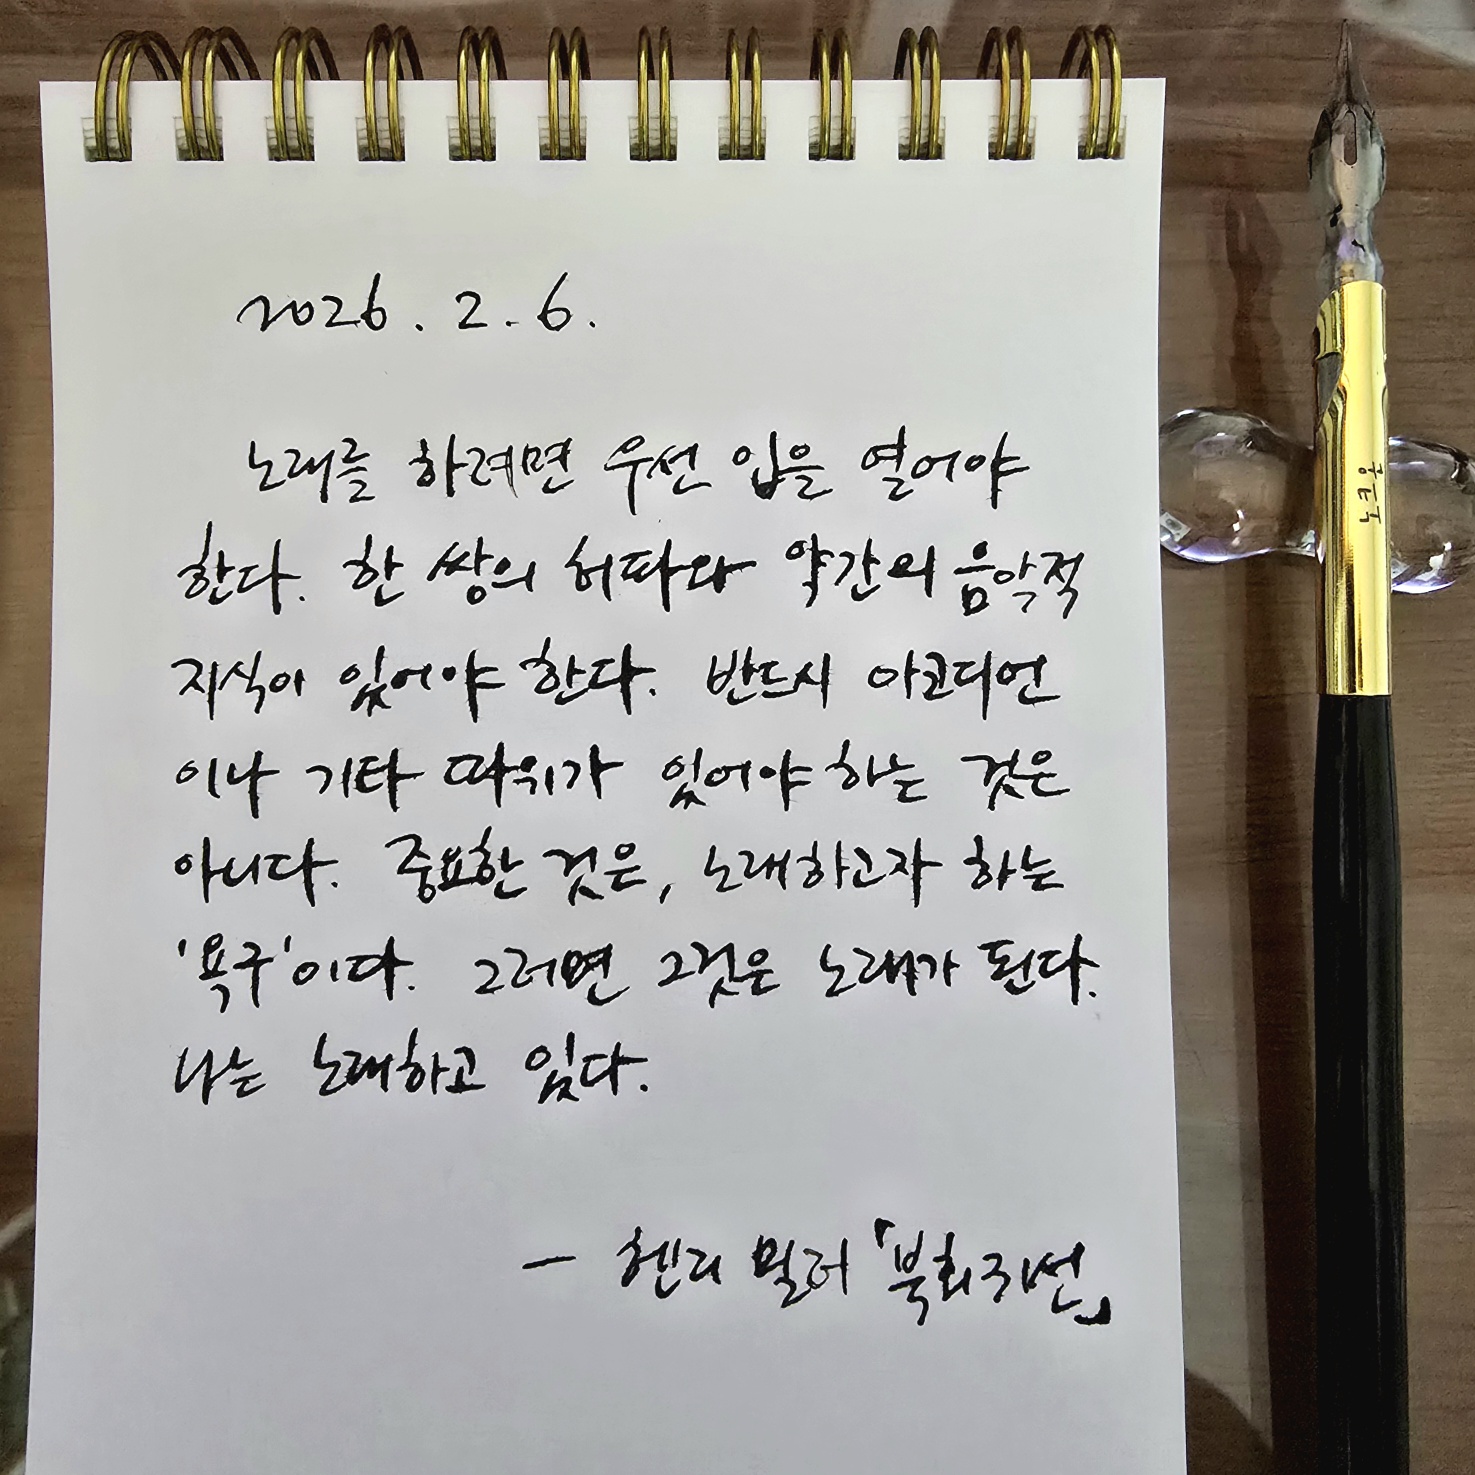 2026. 2. 6.
노래를 하려면 우선 입을 열어야
한다. 한 쌍의 허파와 약간의 음악적
지식이 있어야 한다. 반드시 아코디언
이나 기타 따위가 있어야 하는 것은
아니다. 중요한 것은, 노래하고자 하는
'욕구'이다. 그러면 그것은 노래가 된다.
나는 노래하고 있다.
— 헨리 밀러 「북회귀선」